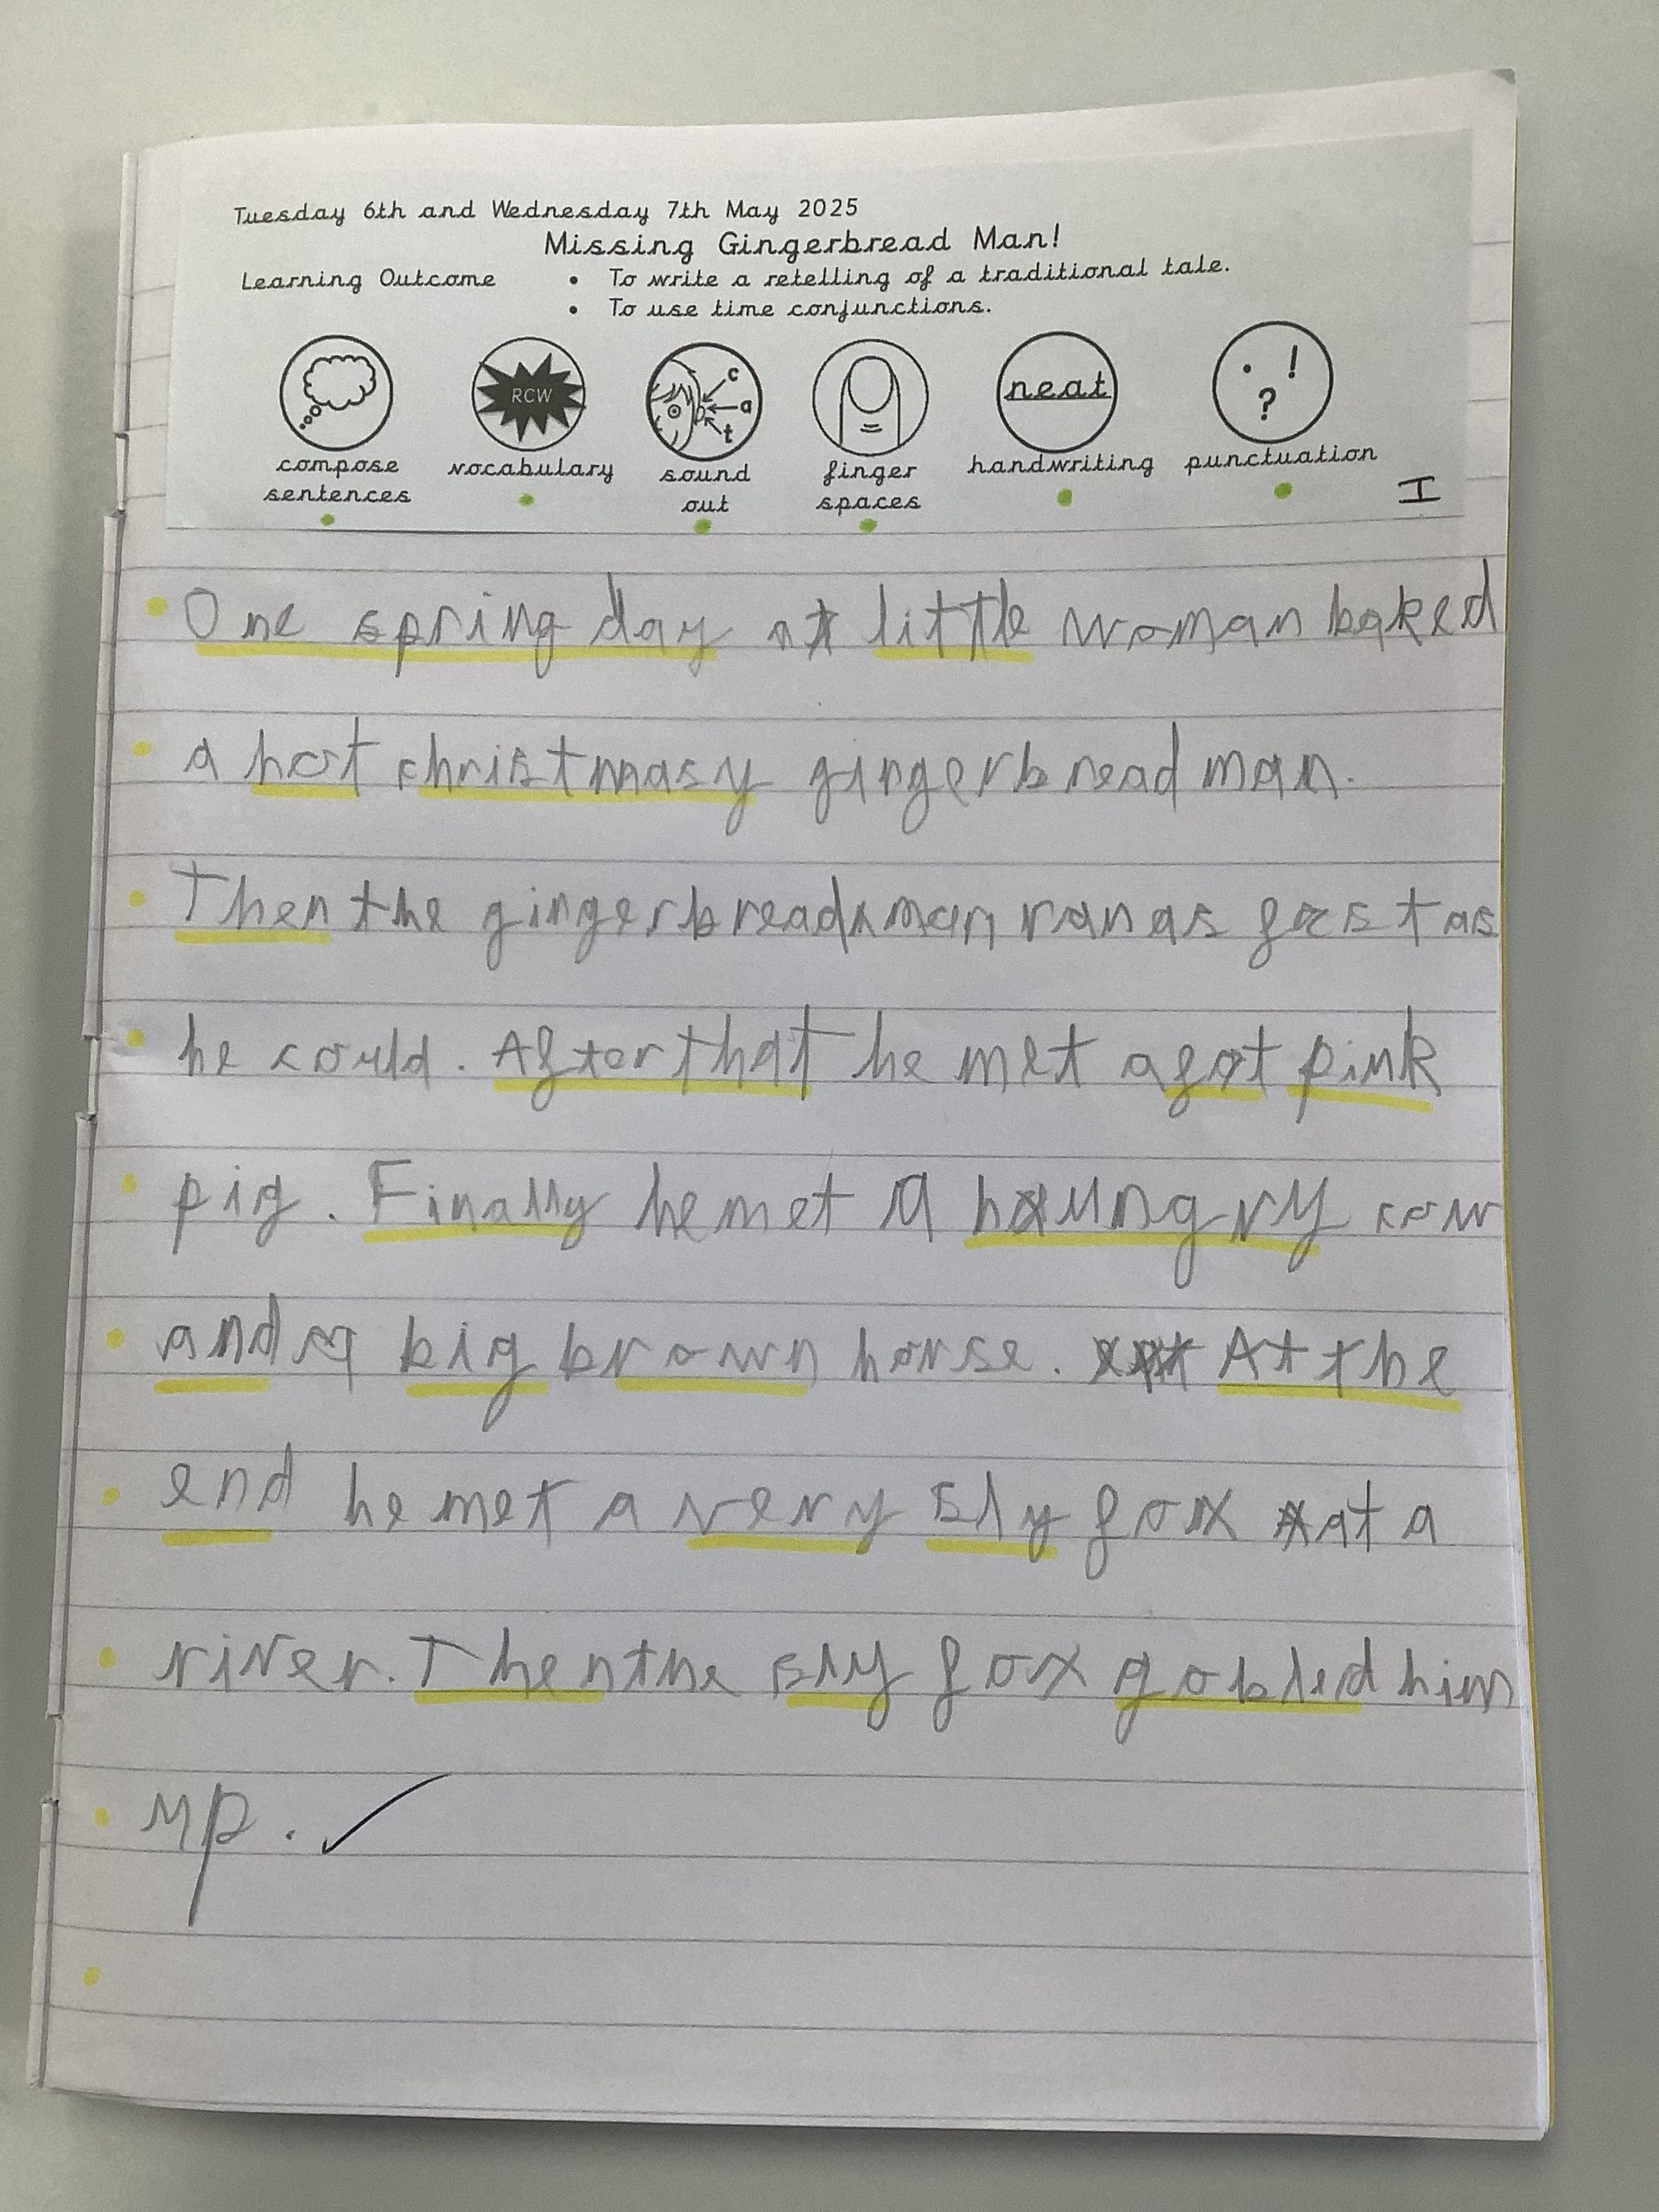 Tuesday 6th and Wednesday 7th May 2025
Missing Gingerbread Man!
Learning Outcome • To write a retelling of a traditional tale.
• To use time conjunctions.
RCW
c
a
t
neat
. ! ?
compose sentences
vocabulary
sound out
finger spaces
handwriting
punctuation
I
One spring day a little woman baked
a hot christmasy gingerbread man.
Then the gingerbread man ran as fast as
he could. After that he met a fat pink
pig. Finally he met a hungry cow
and a big brown horse. At the
end he met a very sly fox at a
river. Then the sly fox gobled him
up.